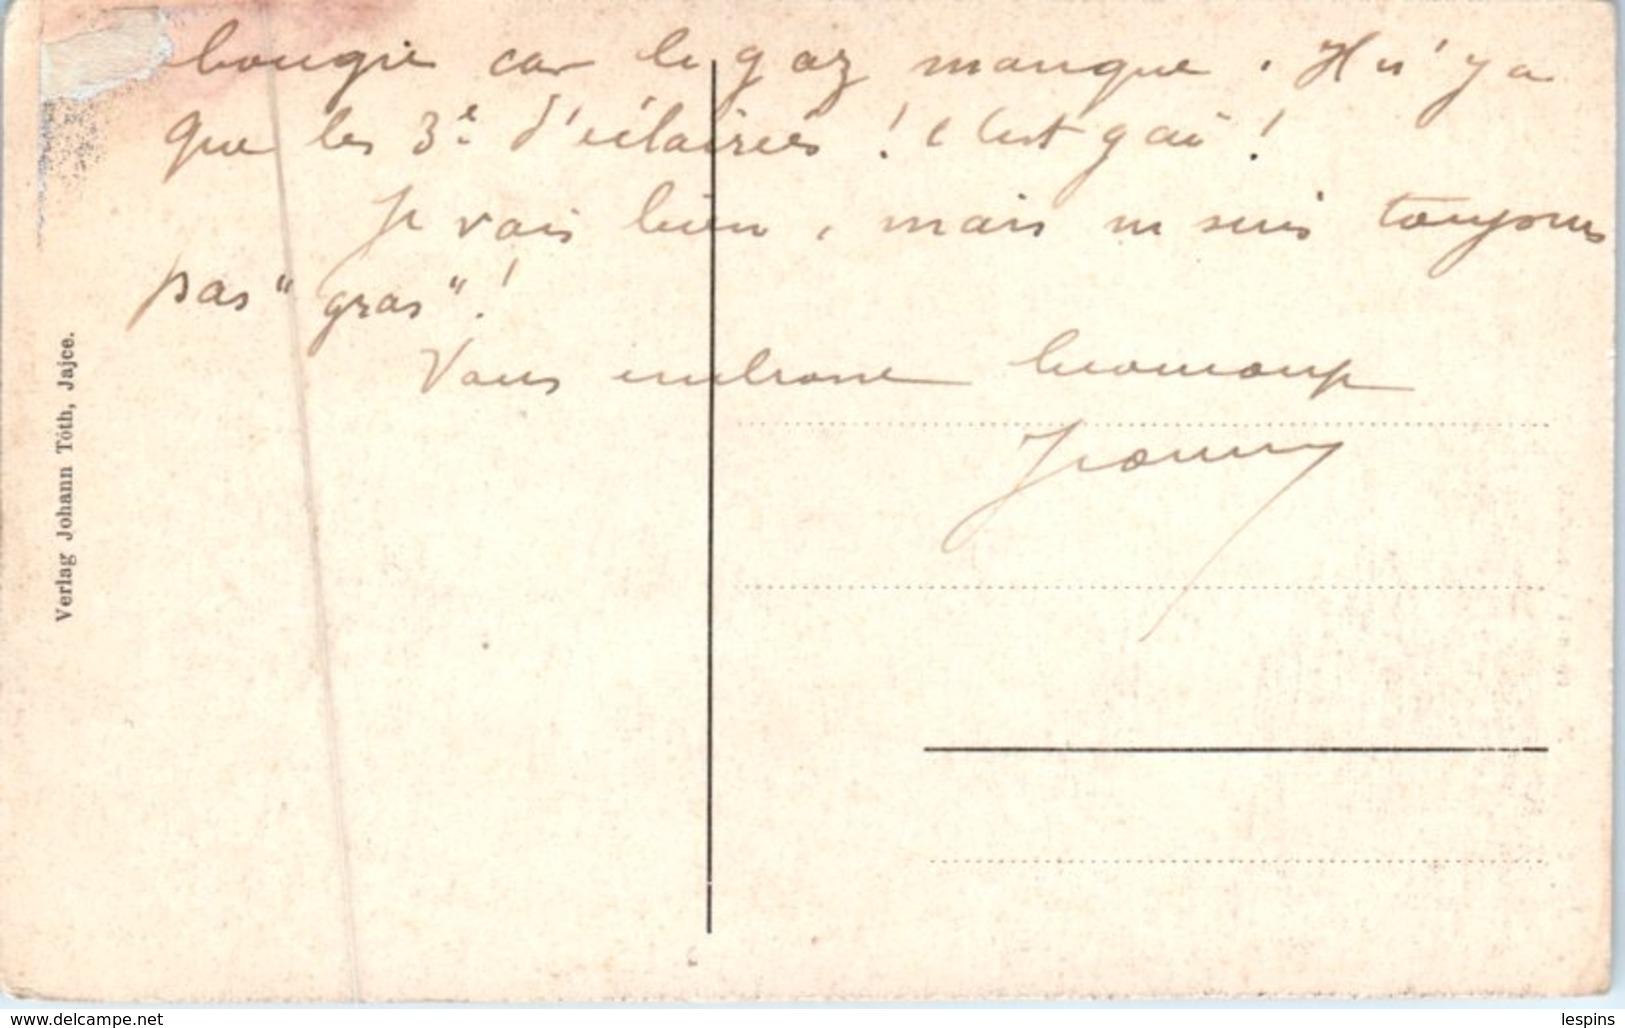 bougie car le gaz manque. Il n'y a
que les 3e d'éclairées ! c'est gai !
Je vais bien, mais ne suis toujours
pas "gras" !
Vous embrasse beaucoup
Verlag Johann Tóth, Jajce.
www.delcampe.net
lespins